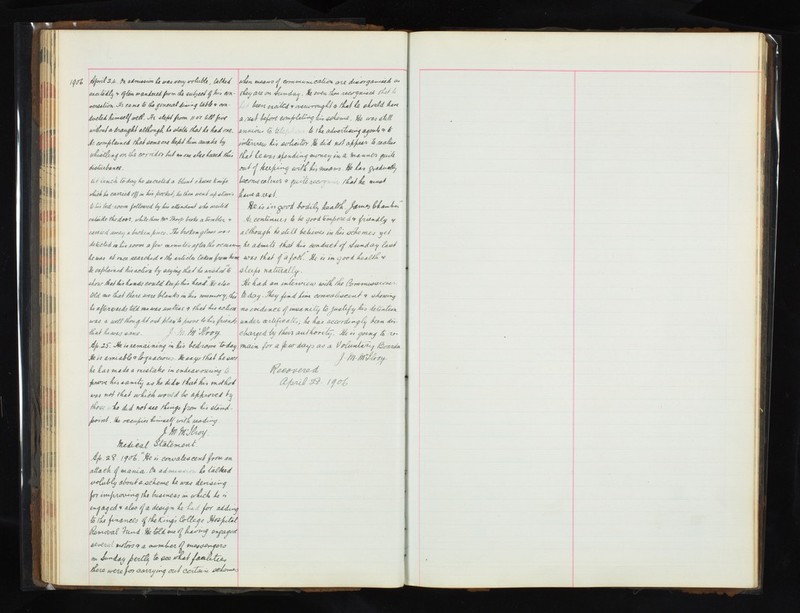 1906 April 24. On admission he was very voluble, talked
excitedly & often wandered from the subject of his con-
versation. He came to the general dining table & con-
ducted himself well. He slept from 11 or till five
without a draught although he states that he had one.
He complained that someone kept him awake by
whistling in the corridor but no one else heard this
disturbance.
At lunch today he secreted a blunt cheese knife
which he carried off in his pocket, he then went up stairs
to his bed-room followed by his attendant who waited
outside the door, while here Mr Thorp broke a tumbler &
carried away a broken piece. The broken glass was
detected in his room a few minutes after the occurrence
he was at once searched & the articles taken from him.
He explained his action by saying that he wished "to
show that his hands could keep his head". He also
told me that there were blanks in his memory, this
he afterwards told me was untrue & that his action
was a well thought out plan to prove to his friends
that he was sane. J. M. McIlroy
Ap. 25. He is remaining in his bedroom today.
He is amiable & loquacious. He says that he sees
he has made a mistake in endeavouring to
prove his sanity as he did & that his method
was not that which would be approved by
those who did not see things from his stand-
point. He occupies himself with reading
J M McIlroy
Medical Statement
Ap. 28 1906. "He is convalescent from an
attack of mania. On admission he talked
volubly about a scheme he was devising
for improving the business in which he is
engaged & also of a design he had for adding
to the finances of the King's College Hospital
Removal Fund. He told me of having engaged
several motors & a number of messengers
on Sunday partly to see what facilities
there were for carrying out certain schemes
when means of communication are disorganised as
they are on Sunday. He even then recognised that he
had been excited & overwrought & that he should have
a rest before completing his scheme. He was still
anxious to telephone to the advertising agents & to
interview his solicitor. He did not appear to realise
that he was spending money in a manner quite
out of keeping with his means. He has gradually
become calmer & quite recognises that he must
have a rest.
He is in good bodily health. James Chambers"
He continues to be good tempered & friendly &
although he still believes in his schemes yet
he admits that his conduct of Sunday last
was that of a fool. He is in good health &
sleeps naturally.
He had an interview with the Commissioners
today. They find him convalescent & showing
no evidence of insanity to justify his detention
under certificates, he has accordingly been dis-
charged by their authority. He is going to re-
main for a few days as a Voluntary Boarder
J. M. McIlroy
Recovered
April 28 1906